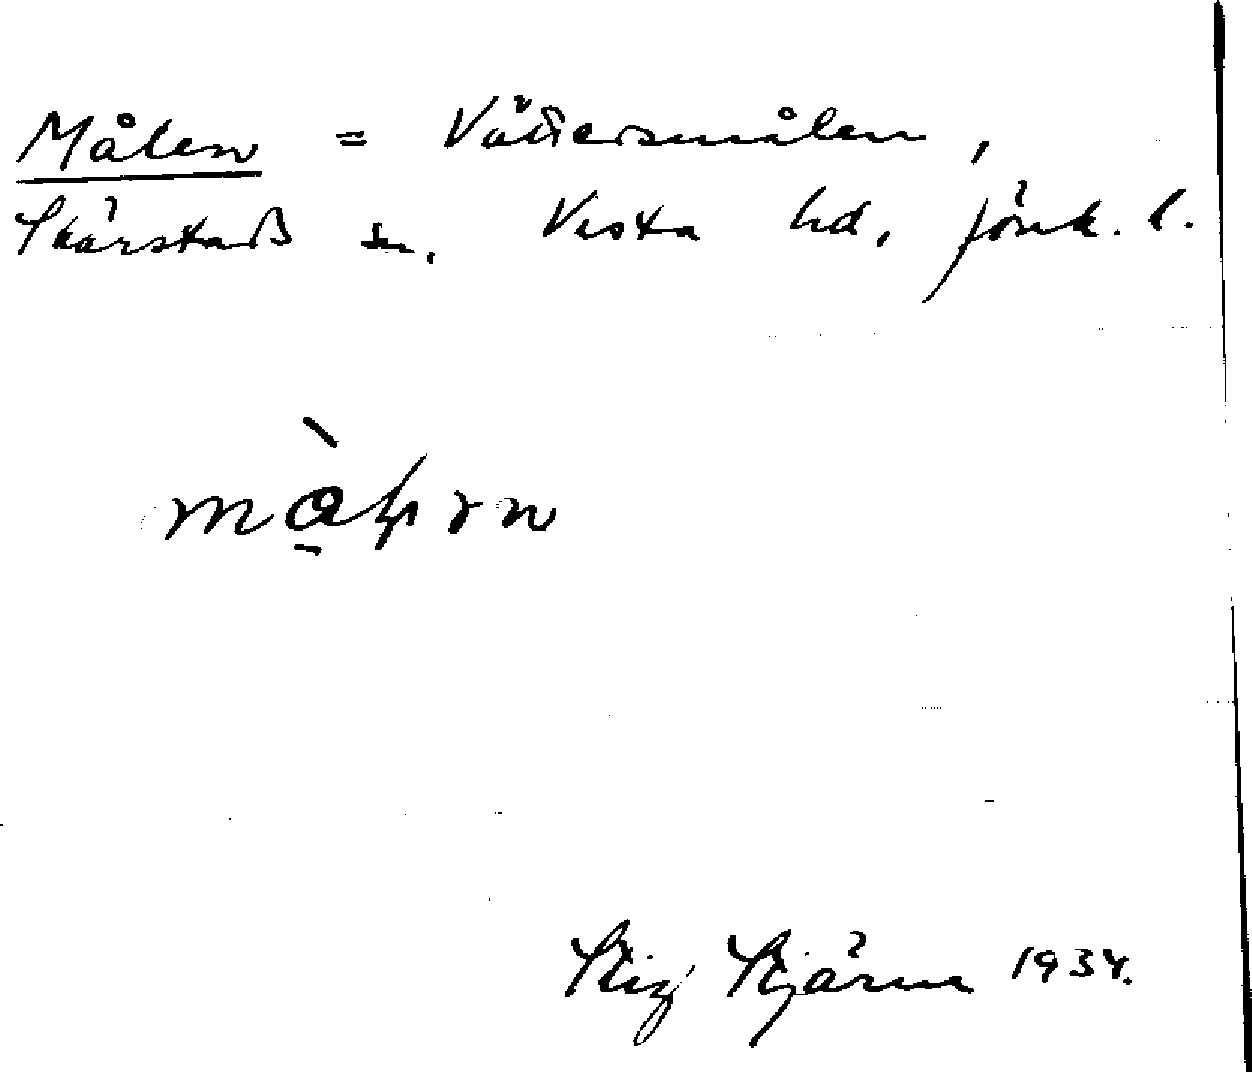 Målen = Vättersmålen,
Skärstad sn. Vista hd, Jönk. l.
Stig Stjärne 1934.